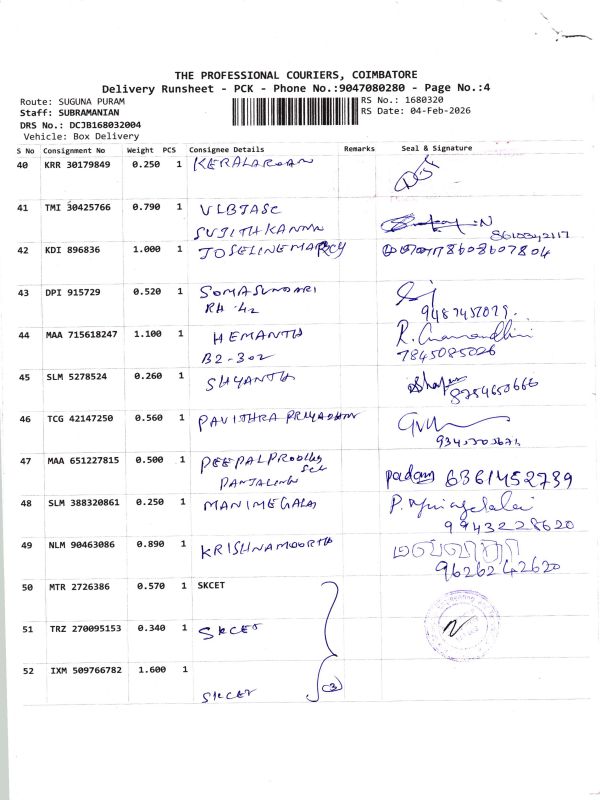 THE PROFESSIONAL COURIERS, COIMBATORE
Delivery Runsheet - PCK - Phone No.:9047080280 - Page No.:4
Route: SUGUNA PURAM
RS No.: 1680320
Staff: SUBRAMANIAN
RS Date: 04-Feb-2026
DRS No.: DCJB168032004
Vehicle: Box Delivery
S No Consignment No Weight PCS Consignee Details Remarks Seal & Signature
40 KRR 30179849 0.250 1
41 TMI 30425766 0.790 1 VLBJASC
SUJITH KANNN
42 KDI 896836 1.000 1 JOSELINE MARCY 8608607804
43 DPI 915729 0.520 1 SOMASUNDARI
RH-42
44 MAA 715618247 1.100 1 HEMANTH
B2-302 7845085026
45 SLM 5278524 0.260 1 SHYANTH
8754650666
46 TCG 42147250 0.560 1 PAVITHRA
47 MAA 651227815 0.500 1 PEEPAL
padam 6361452739
48 SLM 388320861 0.250 1 MANIMEGALAI
9943228620
49 NLM 90463086 0.890 1 KRISHNAMOORTH
9626242620
50 MTR 2726386 0.570 1 SKCET
51 TRZ 270095153 0.340 1 SKCET
52 IXM 509766782 1.600 1
SKCET (3)